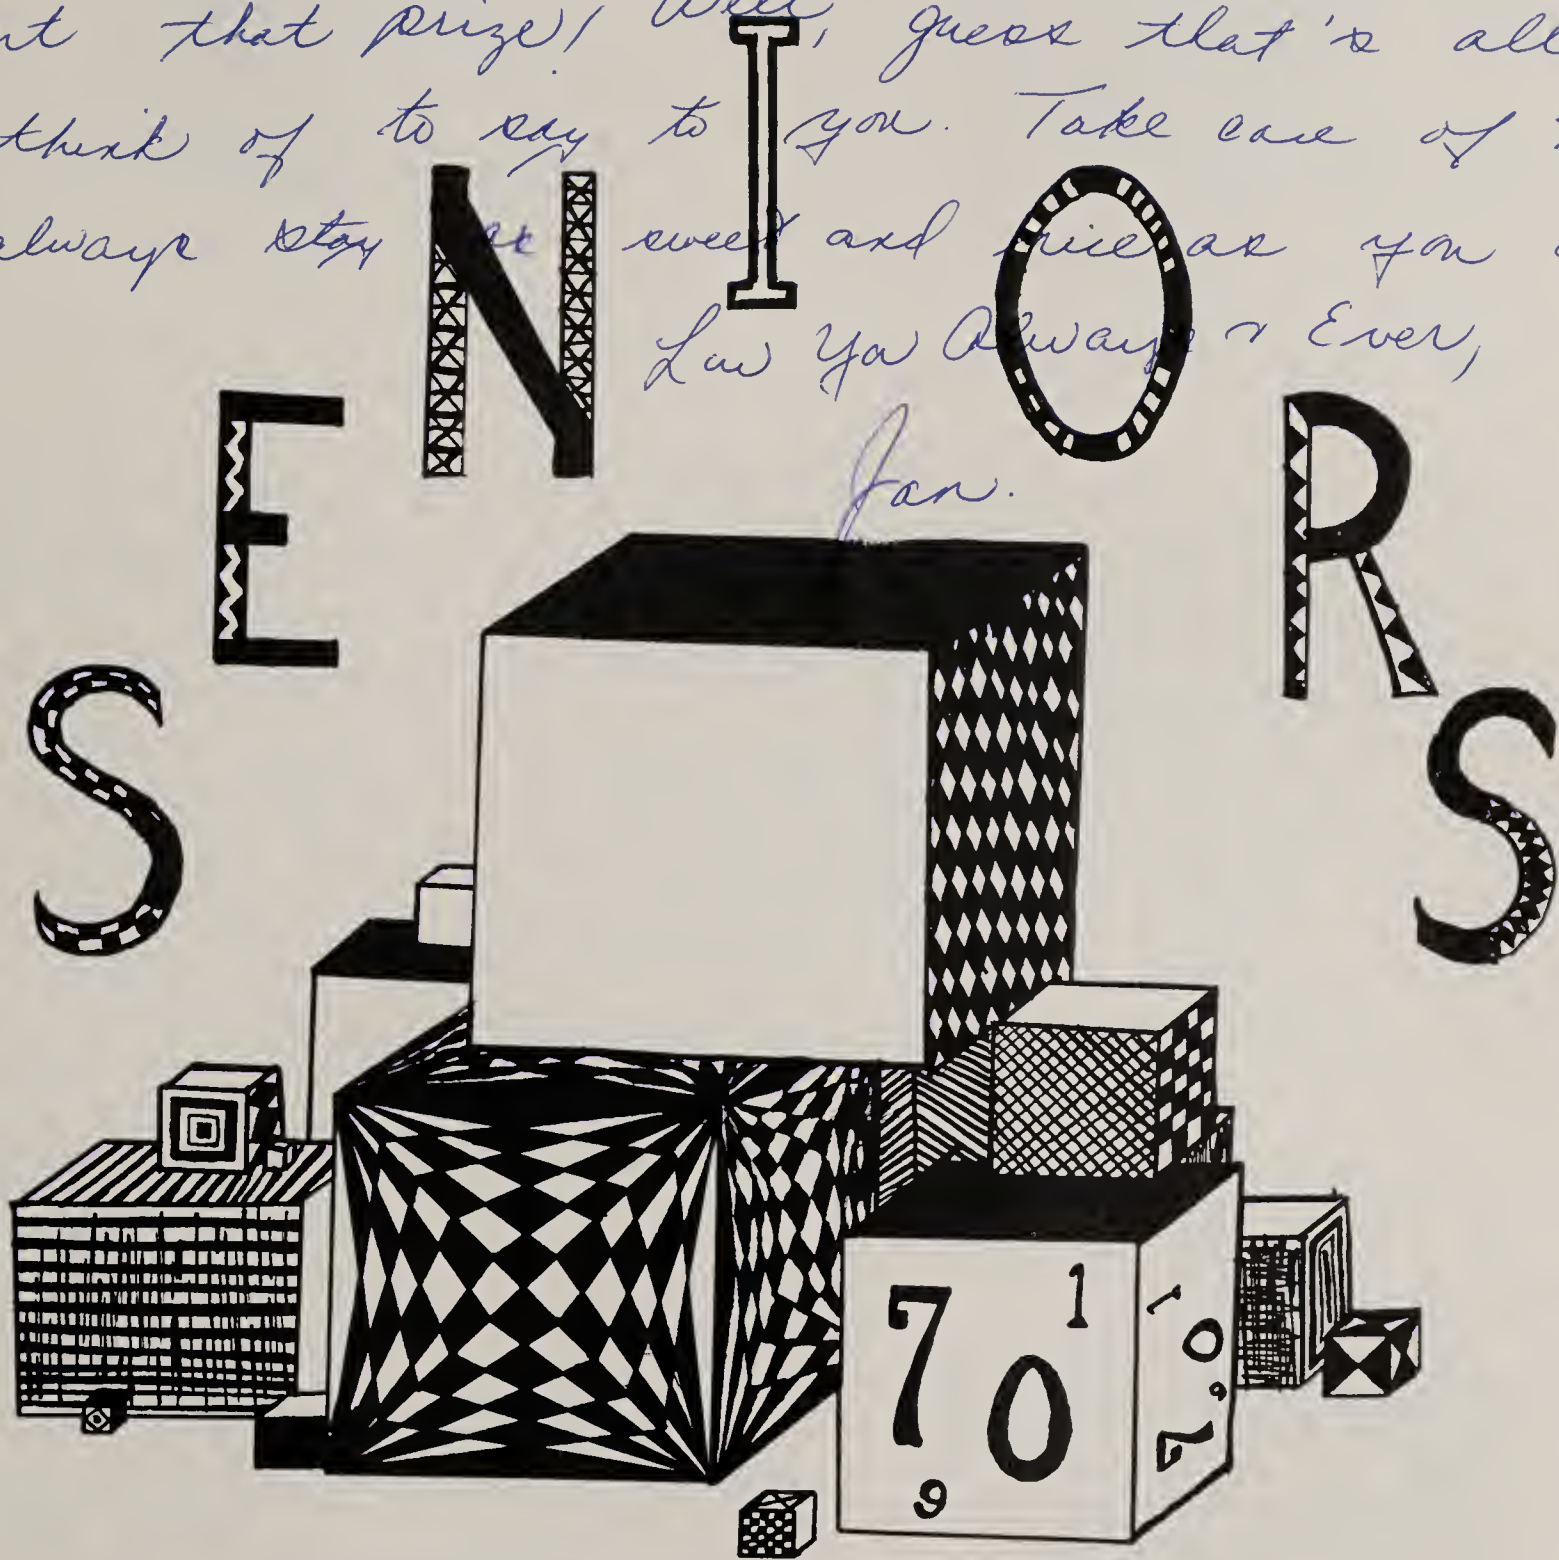 that prize! Well, guess that's all
think of to say to you. Take care of
always stay as sweet and nice as you
Luv Ya Always & Ever,
Jan.
SENIORS
1
70
9
1
0
9
7